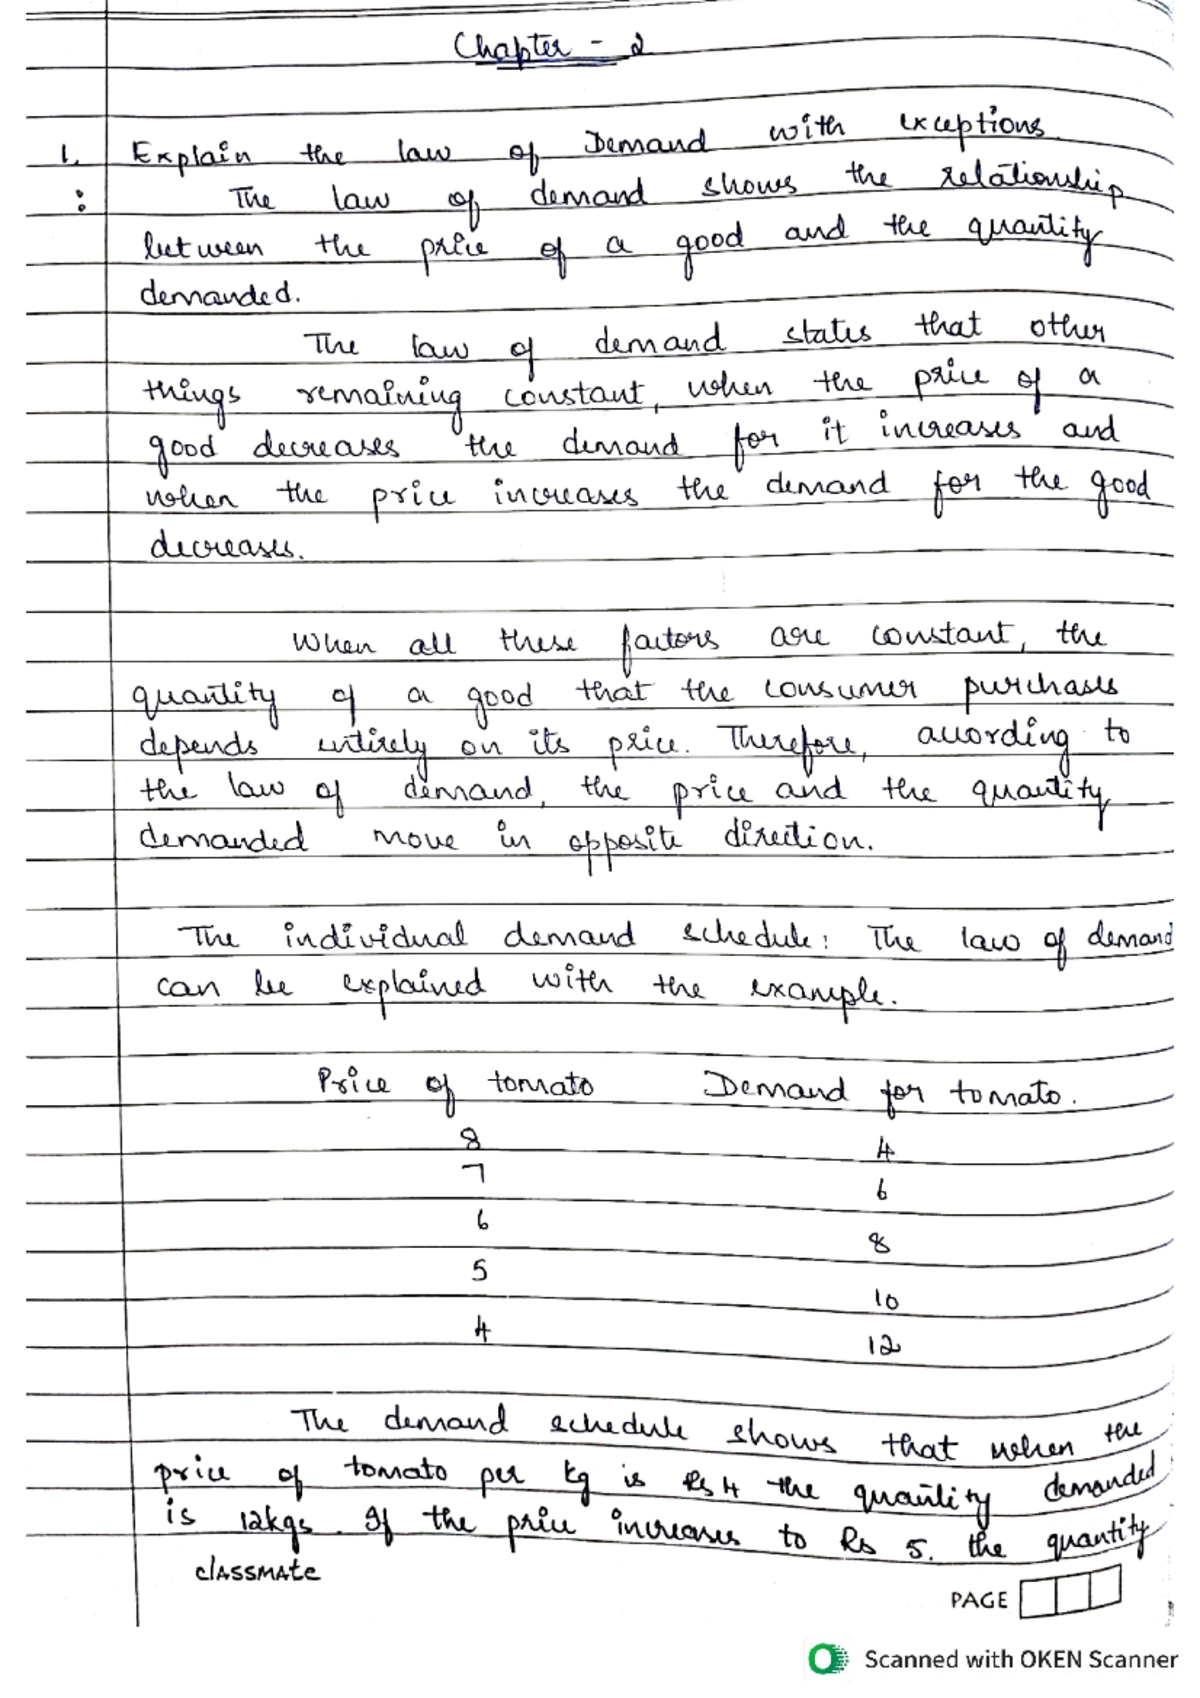 Chapter - 2
1. Explain the law of Demand with exceptions.
: The law of demand shows the relationship
between the price of a good and the quantity
demanded.
The law of demand states that other
things remaining constant, when the price of a
good decreases the demand for it increases and
when the price increases the demand for the good
decreases.
When all these factors are constant, the
quantity of a good that the consumer purchases
depends entirely on its price. Therefore, according to
the law of demand, the price and the quantity
demanded move in opposite direction.
The individual demand schedule: The law of demand
can be explained with the example.
Price of tomato Demand for tomato.
8 4
7 6
6 8
5 10
4 12
The demand schedule shows that when the
price of tomato per kg is Rs 4 the quantity demanded
is 12kgs. If the price increases to Rs 5. the quantity
classmate
PAGE
Scanned with OKEN Scanner